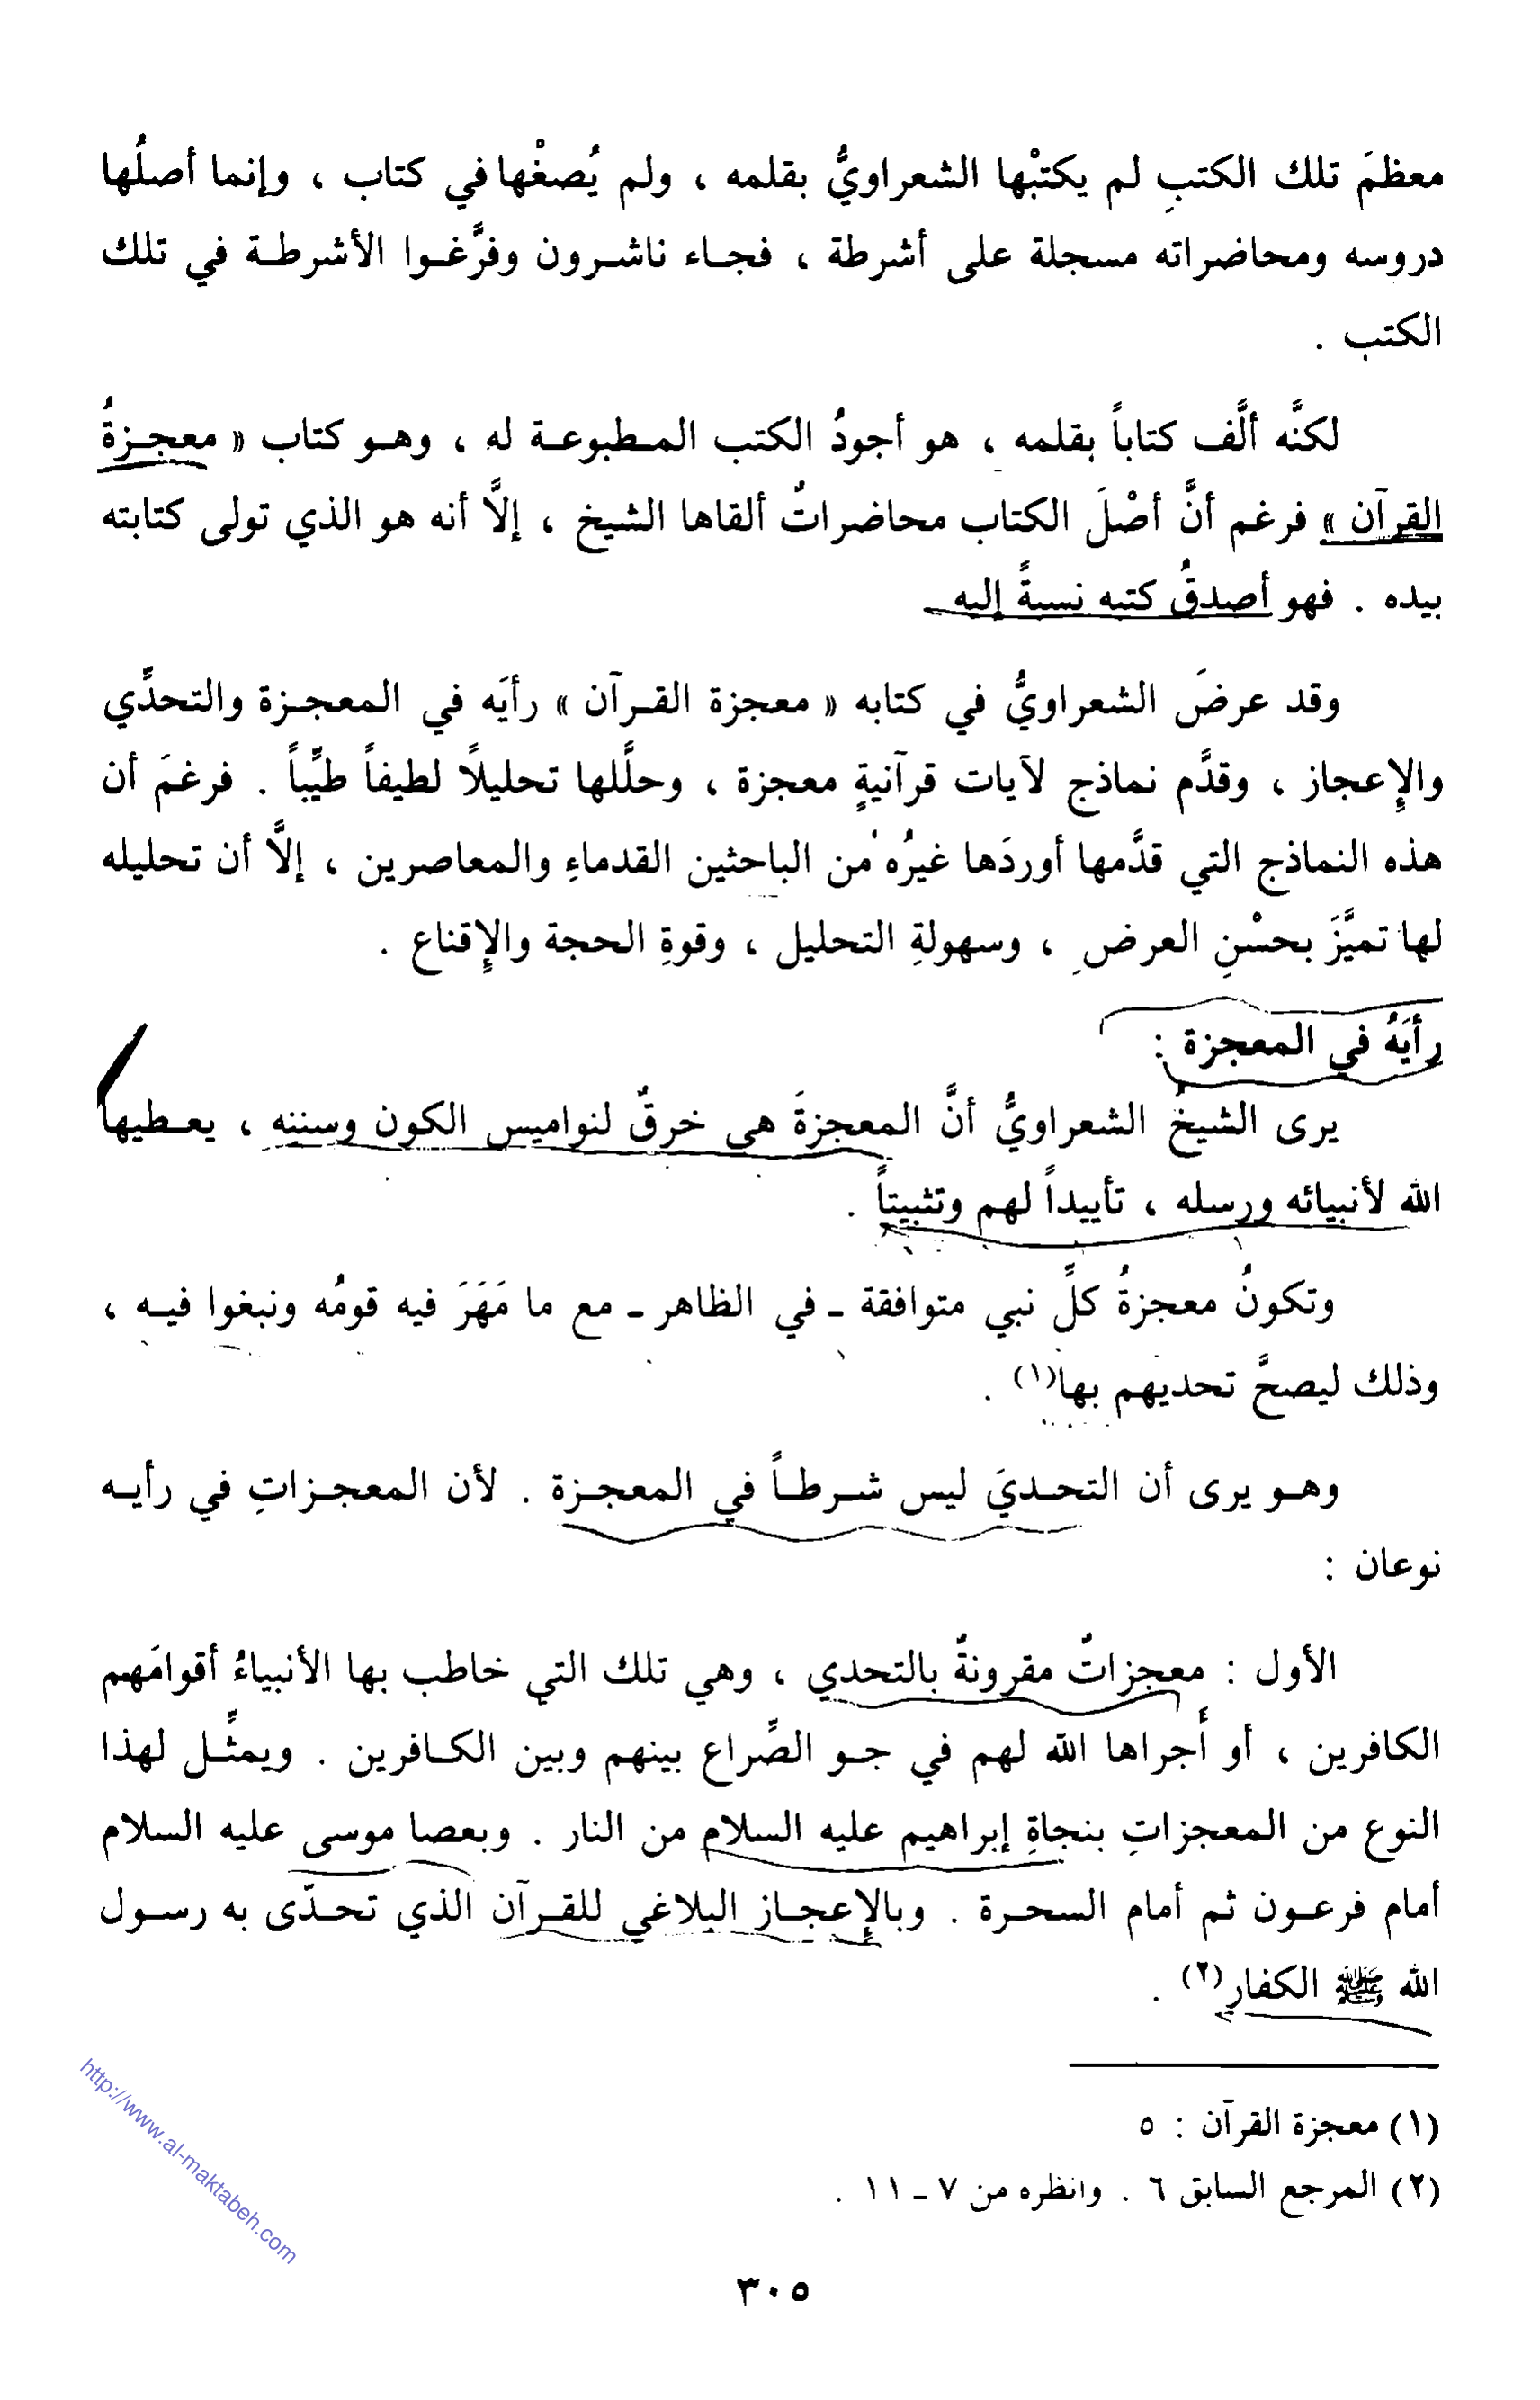 معظمَ تلك الكتبِ لم يكتبْها الشعراويُّ بقلمه ، ولم يُصغْها في كتاب ، وإنما أصلُها
دروسه ومحاضراته مسجلة على أشرطة ، فجاء ناشرون وفرَّغوا الأشرطة في تلك
الكتب .
لكنَّه ألَّف كتاباً بقلمه ، هو أجودُ الكتب المطبوعة له ، وهو كتاب « معجزةُ
القرآن » فرغم أنَّ أصْلَ الكتاب محاضراتٌ ألقاها الشيخ ، إلاَّ أنه هو الذي تولى كتابته
بيده . فهو أصدقُ كتبه نسبةً إليه
وقد عرضَ الشعراويُّ في كتابه « معجزة القرآن » رأيَه في المعجزة والتحدِّي
والإِعجاز ، وقدَّم نماذج لآيات قرآنيةٍ معجزة ، وحلَّلها تحليلاً لطيفاً طيِّباً . فرغمَ أن
هذه النماذج التي قدَّمها أوردَها غيرُه من الباحثين القدماءِ والمعاصرين ، إلاَّ أن تحليله
لها تميَّزَ بحسْنِ العرضِ ، وسهولةِ التحليل ، وقوةِ الحجة والإِقناع .
رأيَهُ في المعجزة :
يرى الشيخُ الشعراويُّ أنَّ المعجزةَ هي خرقٌ لنواميس الكون وسننه ، يعطيها
الله لأنبيائه ورسله ، تأييداً لهم وتثبيتاً .
وتكونُ معجزةُ كلِّ نبي متوافقة ـ في الظاهر ـ مع ما مَهَرَ فيه قومُه ونبغوا فيه ،
وذلك ليصحَّ تحديهم بها(١) .
وهو يرى أن التحديَ ليس شرطاً في المعجزة . لأن المعجزاتِ في رأيه
نوعان :
الأول : معجزاتٌ مقرونةٌ بالتحدي ، وهي تلك التي خاطب بها الأنبياءُ أقوامَهم
الكافرين ، أو أَجراها الله لهم في جو الصِّراع بينهم وبين الكافرين . ويمثِّل لهذا
النوع من المعجزاتِ بنجاةِ إبراهيم عليه السلام من النار . وبعصا موسى عليه السلام
أمام فرعون ثم أمام السحرة . وبالإِعجاز البلاغي للقرآن الذي تحدّى به رسول
الله ﷺ الكفار(٢) .
(١) معجزة القرآن : ٥
(٢) المرجع السابق ٦ . وانظره من ٧ ـ ١١ .
http://www.al-maktabeh.com
٣٠٥